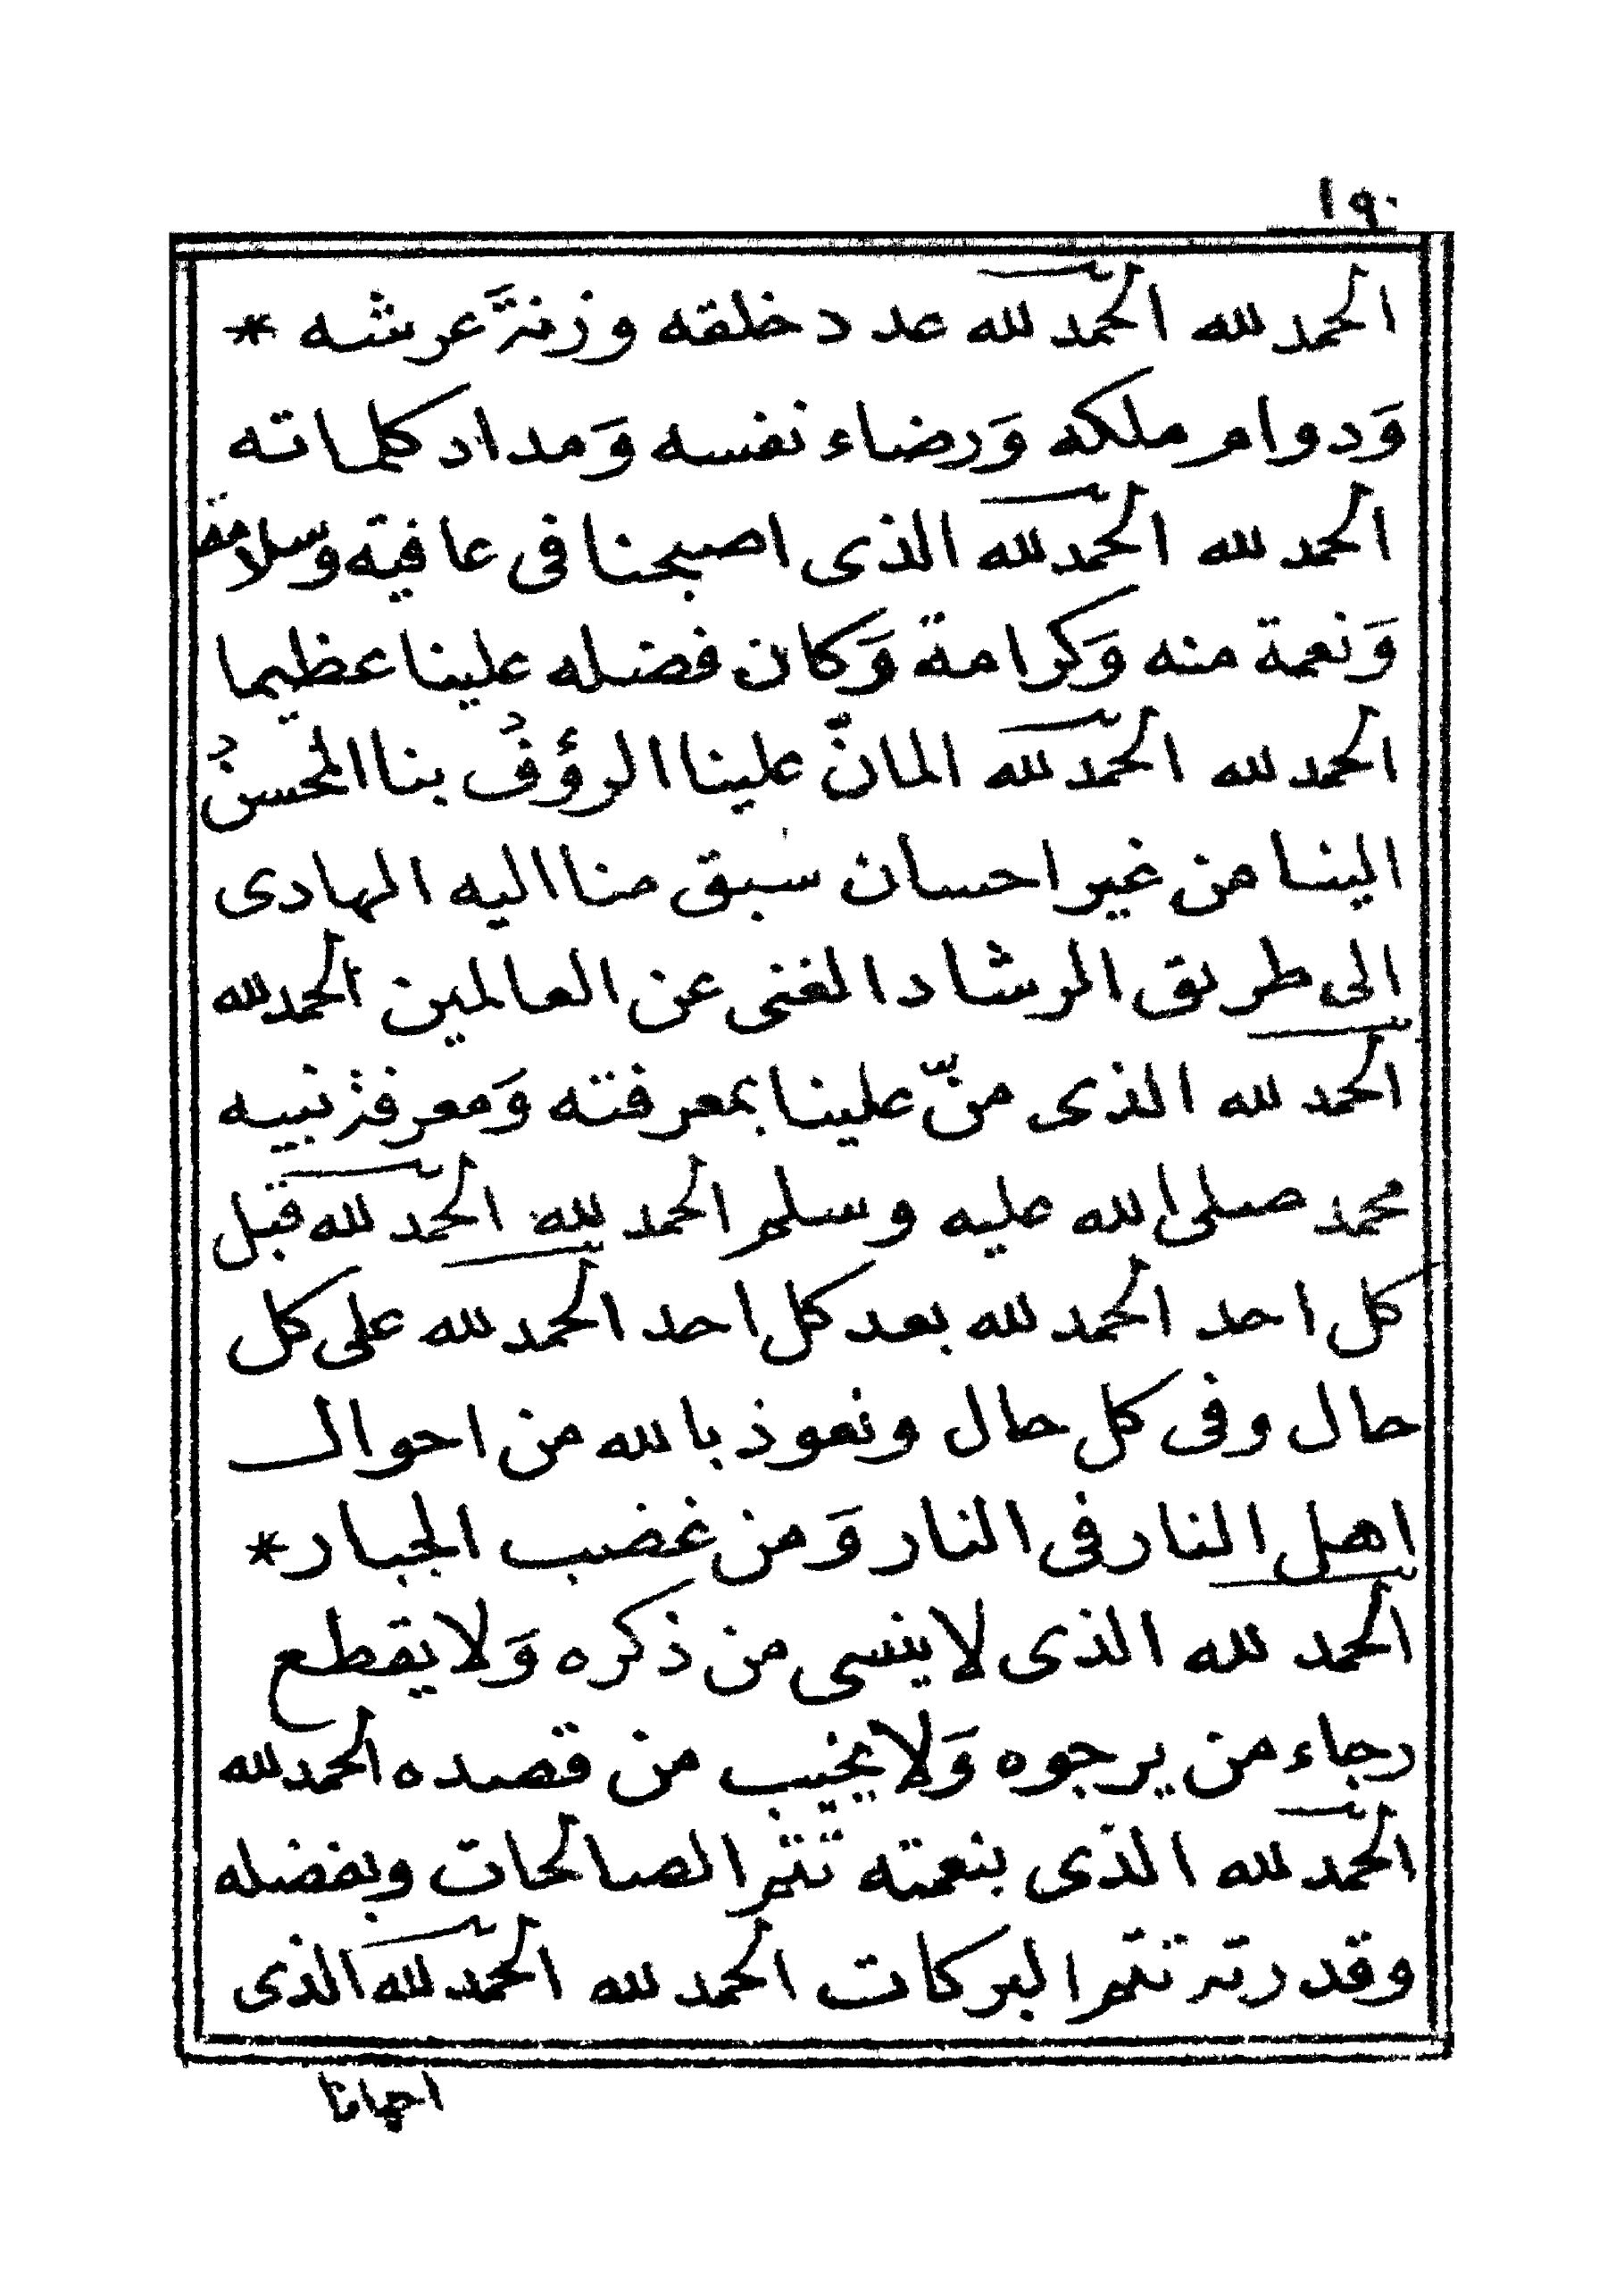 ١٩٠
الحمد لله الحمد لله عدد خلقه وزنةَ عرشه *
وَدوام ملكه وَرضاء نفسه وَمداد كلماته
الحمد لله الحمد لله الذى اصبحنا فى عافية وسلامة
وَنعمة منه وَكرامة وَكان فضله علينا عظيما
الحمد لله الحمد لله المانّ علينا الرؤفُ بنا المحسنُ
الينا من غير احسان سبق منا اليه الهادى
الى طريق الرشاد الغنى عن العالمين الحمد لله
الحمد لله الذى منّ علينا بمعرفته وَمعرفة نبيه
محمد صلى الله عليه وسلم الحمد لله الحمد لله قبل
كل احد الحمد لله بعد كل احد الحمد لله على كل
حال وفى كل حال ونعوذ بالله من احوال
اهل النار فى النار وَمن غضب الجبار *
الحمد لله الذى لا ينسى من ذكره وَلا يقطع
رجاء من يرجوه وَلا يخيب من قصده الحمد لله
الحمد لله الذى بنعمته تتم الصالحات وبفضله
وقدرته تتم البركات الحمد لله الحمد لله الذى